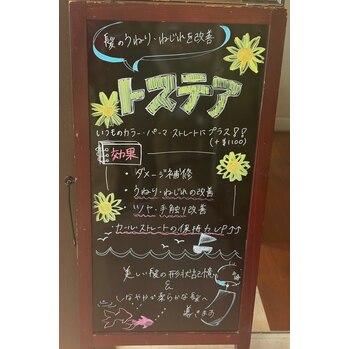 髪のうねり・ねじれを改善
トステア
いつものカラー・パーマ・ストレートにプラス!!
(+¥1100)
効果
・ダメージ補修
・うねり・ねじれの改善
・ツヤ・手触り改善
・カール・ストレートの保持力UP↑↑
美しい髪の形状記憶
&
しなやかで柔らかな髪へ
導きます